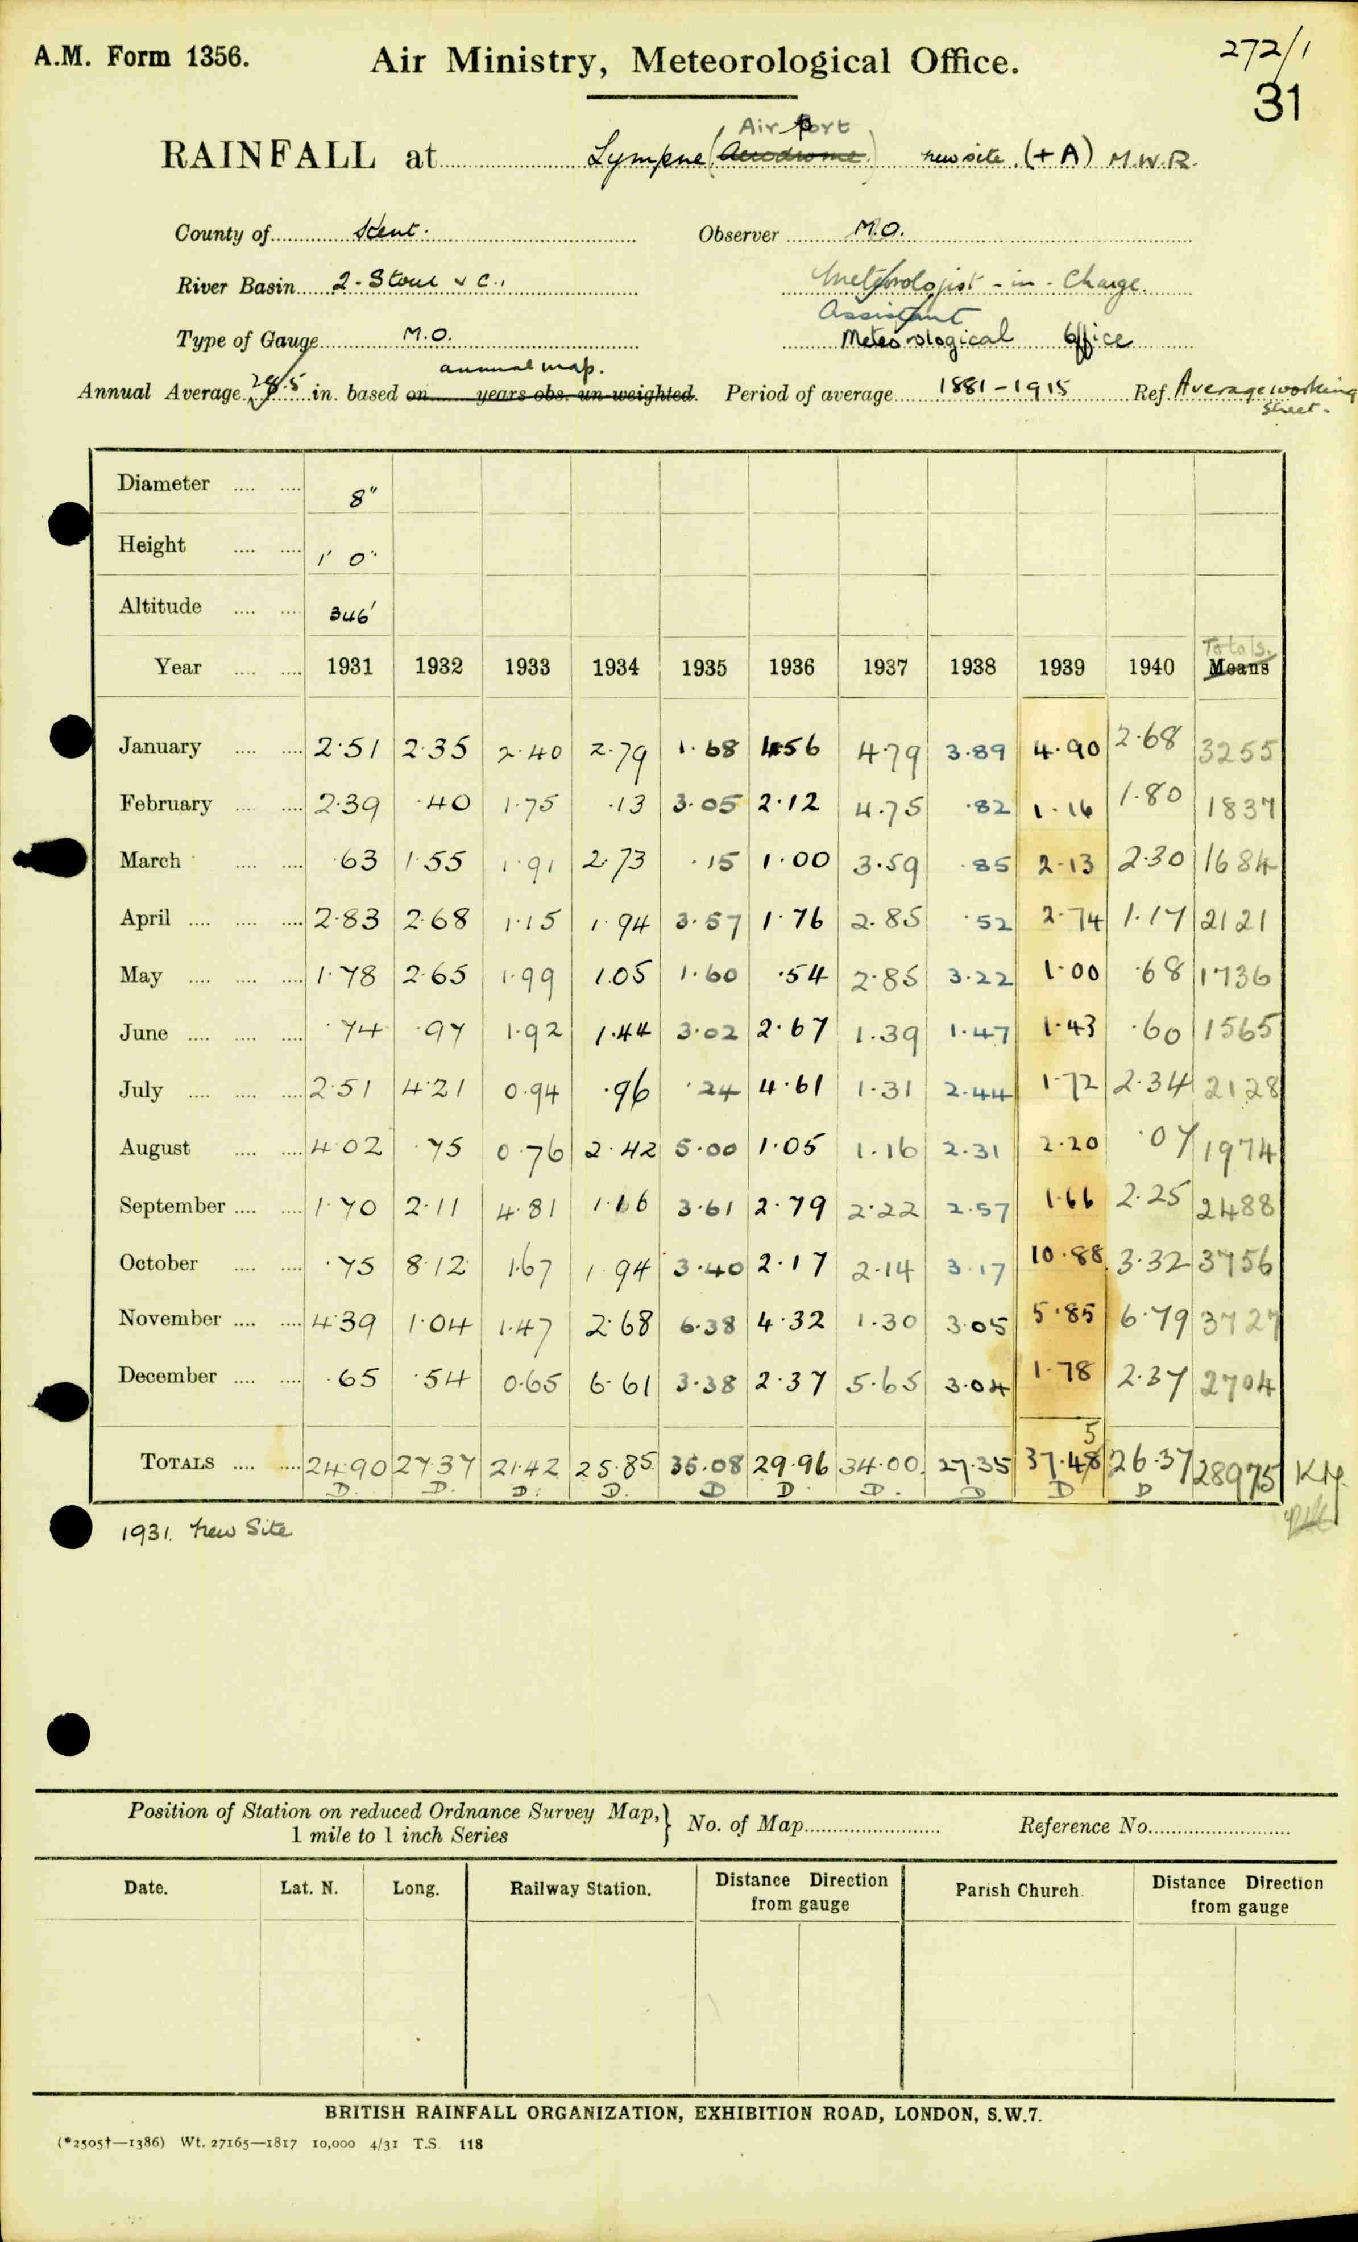 A.M. Form 1356.
Air Ministry, Meteorological Office.
272/1
31
Air Port
RAINFALL at Lympne (Aerodrome) new site. (+A) M.W.R.
County of Kent.
Observer M.O.
River Basin 2 - Stour & C.
Meteorologist - in - Charge
Assistant
Type of Gauge M.O.
Meteorological Office
annual map.
Annual Average 28.5 in. based on years obs. un-weighted. Period of average 1881-1915 Ref Average working
Sheet.
Diameter 8"
Height 1' 0"
Altitude 346'
Totals.
Year 1931 1932 1933 1934 1935 1936 1937 1938 1939 1940 Means
January 2·51 2·35 2·40 2·79 1·68 4·56 4·79 3·89 4·90 2·68 3255
February 2·39 ·40 1·75 ·13 3·05 2·12 4·75 ·82 1·16 1·80 1837
March ·63 1·55 1·91 2·73 ·15 1·00 3·59 ·85 2·13 2·30 1684
April 2·83 2·68 1·15 1·94 3·57 1·76 2·85 ·52 2·74 1·17 2121
May 1·78 2·65 1·99 1·05 1·60 ·54 2·85 3·22 1·00 ·68 1736
June ·74 ·97 1·92 1·44 3·02 2·67 1·39 1·47 1·43 ·60 1565
July 2·51 4·21 0·94 ·96 ·24 4·61 1·31 2·44 1·72 2·34 2128
August 4·02 ·75 0·76 2·42 5·00 1·05 1·16 2·31 2·20 ·07 1974
September 1·70 2·11 4·81 1·16 3·61 2·79 2·22 2·57 1·66 2·25 2488
October ·75 8·12 1·67 1·94 3·40 2·17 2·14 3·17 10·88 3·32 3756
November 4·39 1·04 1·47 2·68 6·38 4·32 1·30 3·05 5·85 6·79 3727
December ·65 ·54 0·65 6·61 3·38 2·37 5·65 3·04 1·78 2·37 2704
5
TOTALS 24·90 27·37 21·42 25·85 35·08 29·96 34·00 27·35 37·48 26·37 28975
D. D. D. D. D D. D. D D D
1931. New Site
Position of Station on reduced Ordnance Survey Map,
1 mile to 1 inch Series
No. of Map
Reference No.
Date. Lat. N. Long. Railway Station. Distance Direction from gauge Parish Church. Distance Direction from gauge
BRITISH RAINFALL ORGANIZATION, EXHIBITION ROAD, LONDON, S.W.7.
(*2505†—1386) Wt. 27165—1817 10,000 4/31 T.S. 118